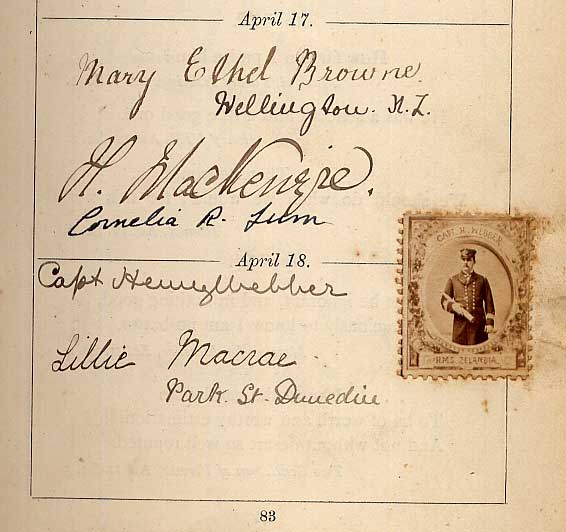 April 17.
Mary Ethel Browne.
Wellington. N.Z.
H. MacKenzie.
Cornelia R.
April 18.
Capt Henry Webber
CAPT. H. WEBBER
R.M.S. ZELANDIA.
Lillie Macrae
Park. St. Dunedin
83